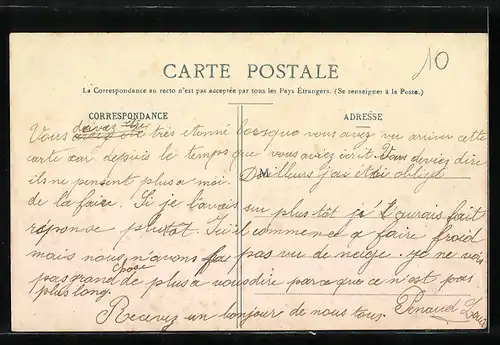 10
CARTE POSTALE
La Correspondance au recto n'est pas acceptée par tous les Pays Étrangers. (Se renseigner à la Poste.)
CORRESPONDANCE
ADRESSE
devez etre
Vous très etonné lorsque vous avez vu arriver cette
carte car depuis le temps que vous aviez écrit. Vous deviez dire
ils ne pensent plus a moi. D'ailleurs j'ai été obligé
M
de la faire. Si je l'avais su plus tôt je t'aurais fait
réponse plutôt. Ici il commence a faire froid
mais nous n'avons pas vu de neige. je ne vois
chose
pas grand de plus a vous dire parce que ce n'est pas
plus long.
Recevez un bonjour de nous tous. Renaud Louis